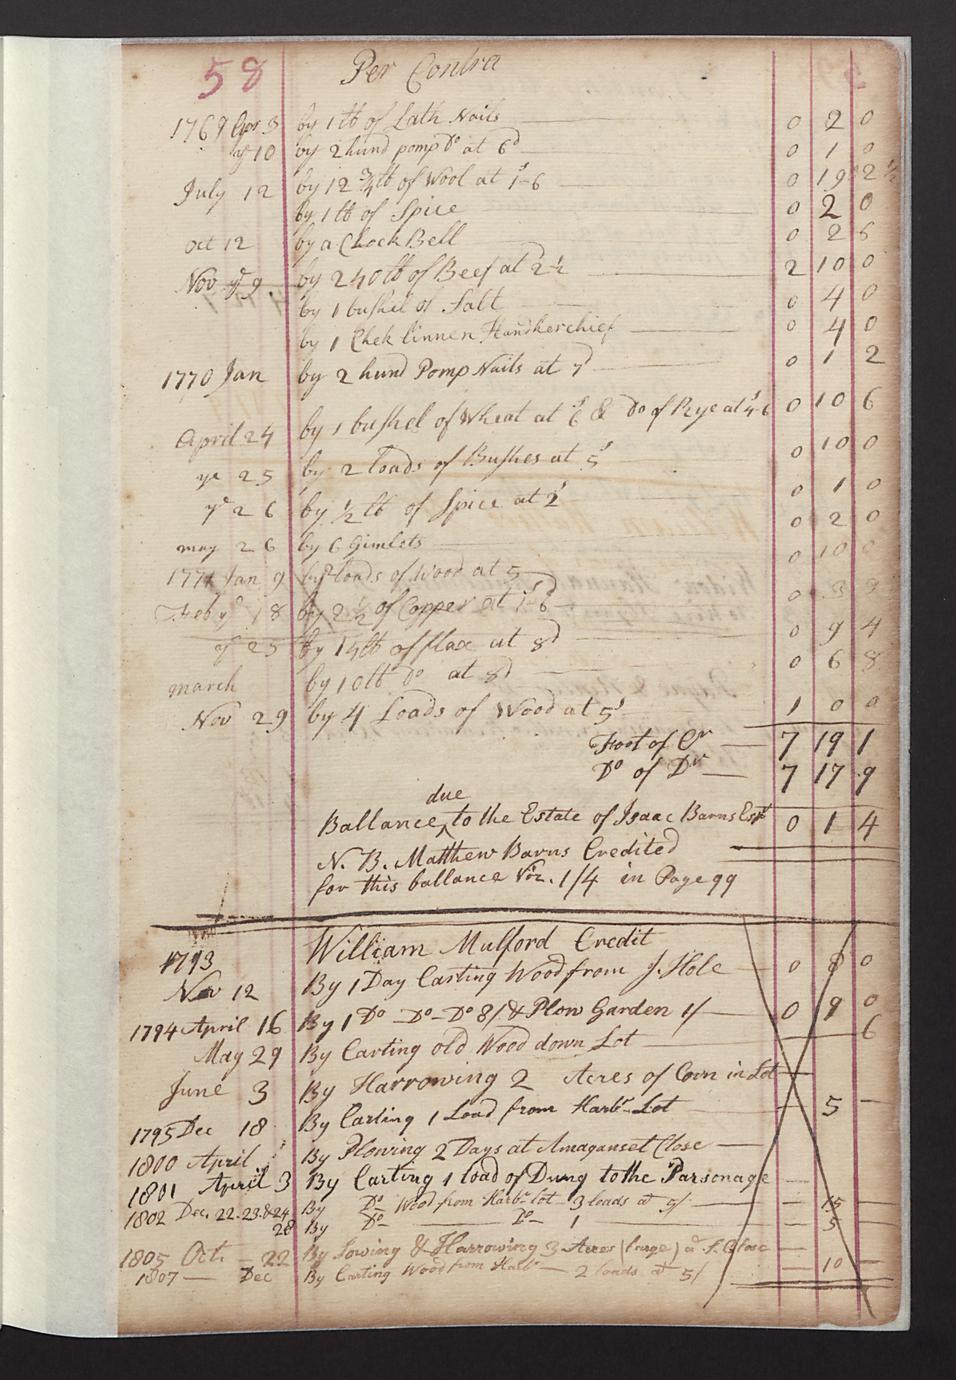 58 Per Contra
1769 Apr 3 by 1 lb of Lath Nails 0 2 0
ye 10 by 2 hund pomp Do at 6d 0 1 0
July 12 by 12 3/4 lb of Wool at 1s-6 0 19 2 1/2
by 1 lb of Spice 0 2 0
Oct 12 by a Chock Bell 0 2 6
Nov ye 9 by 240 lb of Beef at 2 1/2 2 10 0
by 1 bushel of Salt 0 4 0
by 1 Chek linnen Handkerchief 0 4 0
1770 Jan by 2 hund Pomp Nails at 7d 0 1 2
by 1 bushel of Wheat at 6s & Do of Rye at 4s-6 0 10 6
April 24
ye 25 by 2 loads of Bushes at 5s 0 10 0
ye 26 by 1/2 lb of Spice at 2s 0 1 0
may 26 by 6 Gimlets 0 2 0
1771 Jan 9 by loads of Wood at 5 0 10 0
Feb ye 18 by 2 1/2 of Copper at 1s-6d 0 3 9
ye 25 by 14 lb of flax at 8d 0 9 4
march by 10 lb Do at 8d 0 6 8
Nov 29 by 4 Loads of Wood at 5s 1 0 0
Foot of Cr 7 19 1
Do of Dr 7 17 9
due
Ballance ‸ to the Estate of Isaac Barns Esqr 0 1 4
N. B. Matthew Barns Credited
for this ballance Viz. 1/4 in Page 99
William Mulford Credit
1793
Nov 12 By 1 Day Carting Wood from J. Hole 0 8 0
1794 April 16 By 1 Do Do Do 8/ & Plow Garden 1/ 0 9 0
May 29 By Carting old Wood down Lot 6
June 3 By Harrowing 2 Acres of Corn in Lot
1795 Dec 18 By Carting 1 Load from Harbr Lot 5
1800 April By Plowing 2 Days at Amaganset Close
1801 April 3 By Carting 1 load of Dung to the Parsonage
1802 Dec. 22. 23. & 24 By Do Wood from Harbr lot 3 loads at 15
28 By Do Do 1 5
1805 Oct 22 By Sowing & Harrowing 3 Acres (large) a F. Close
1807 Dec By Carting Wood from Harbr 2 loads at 5/ 10